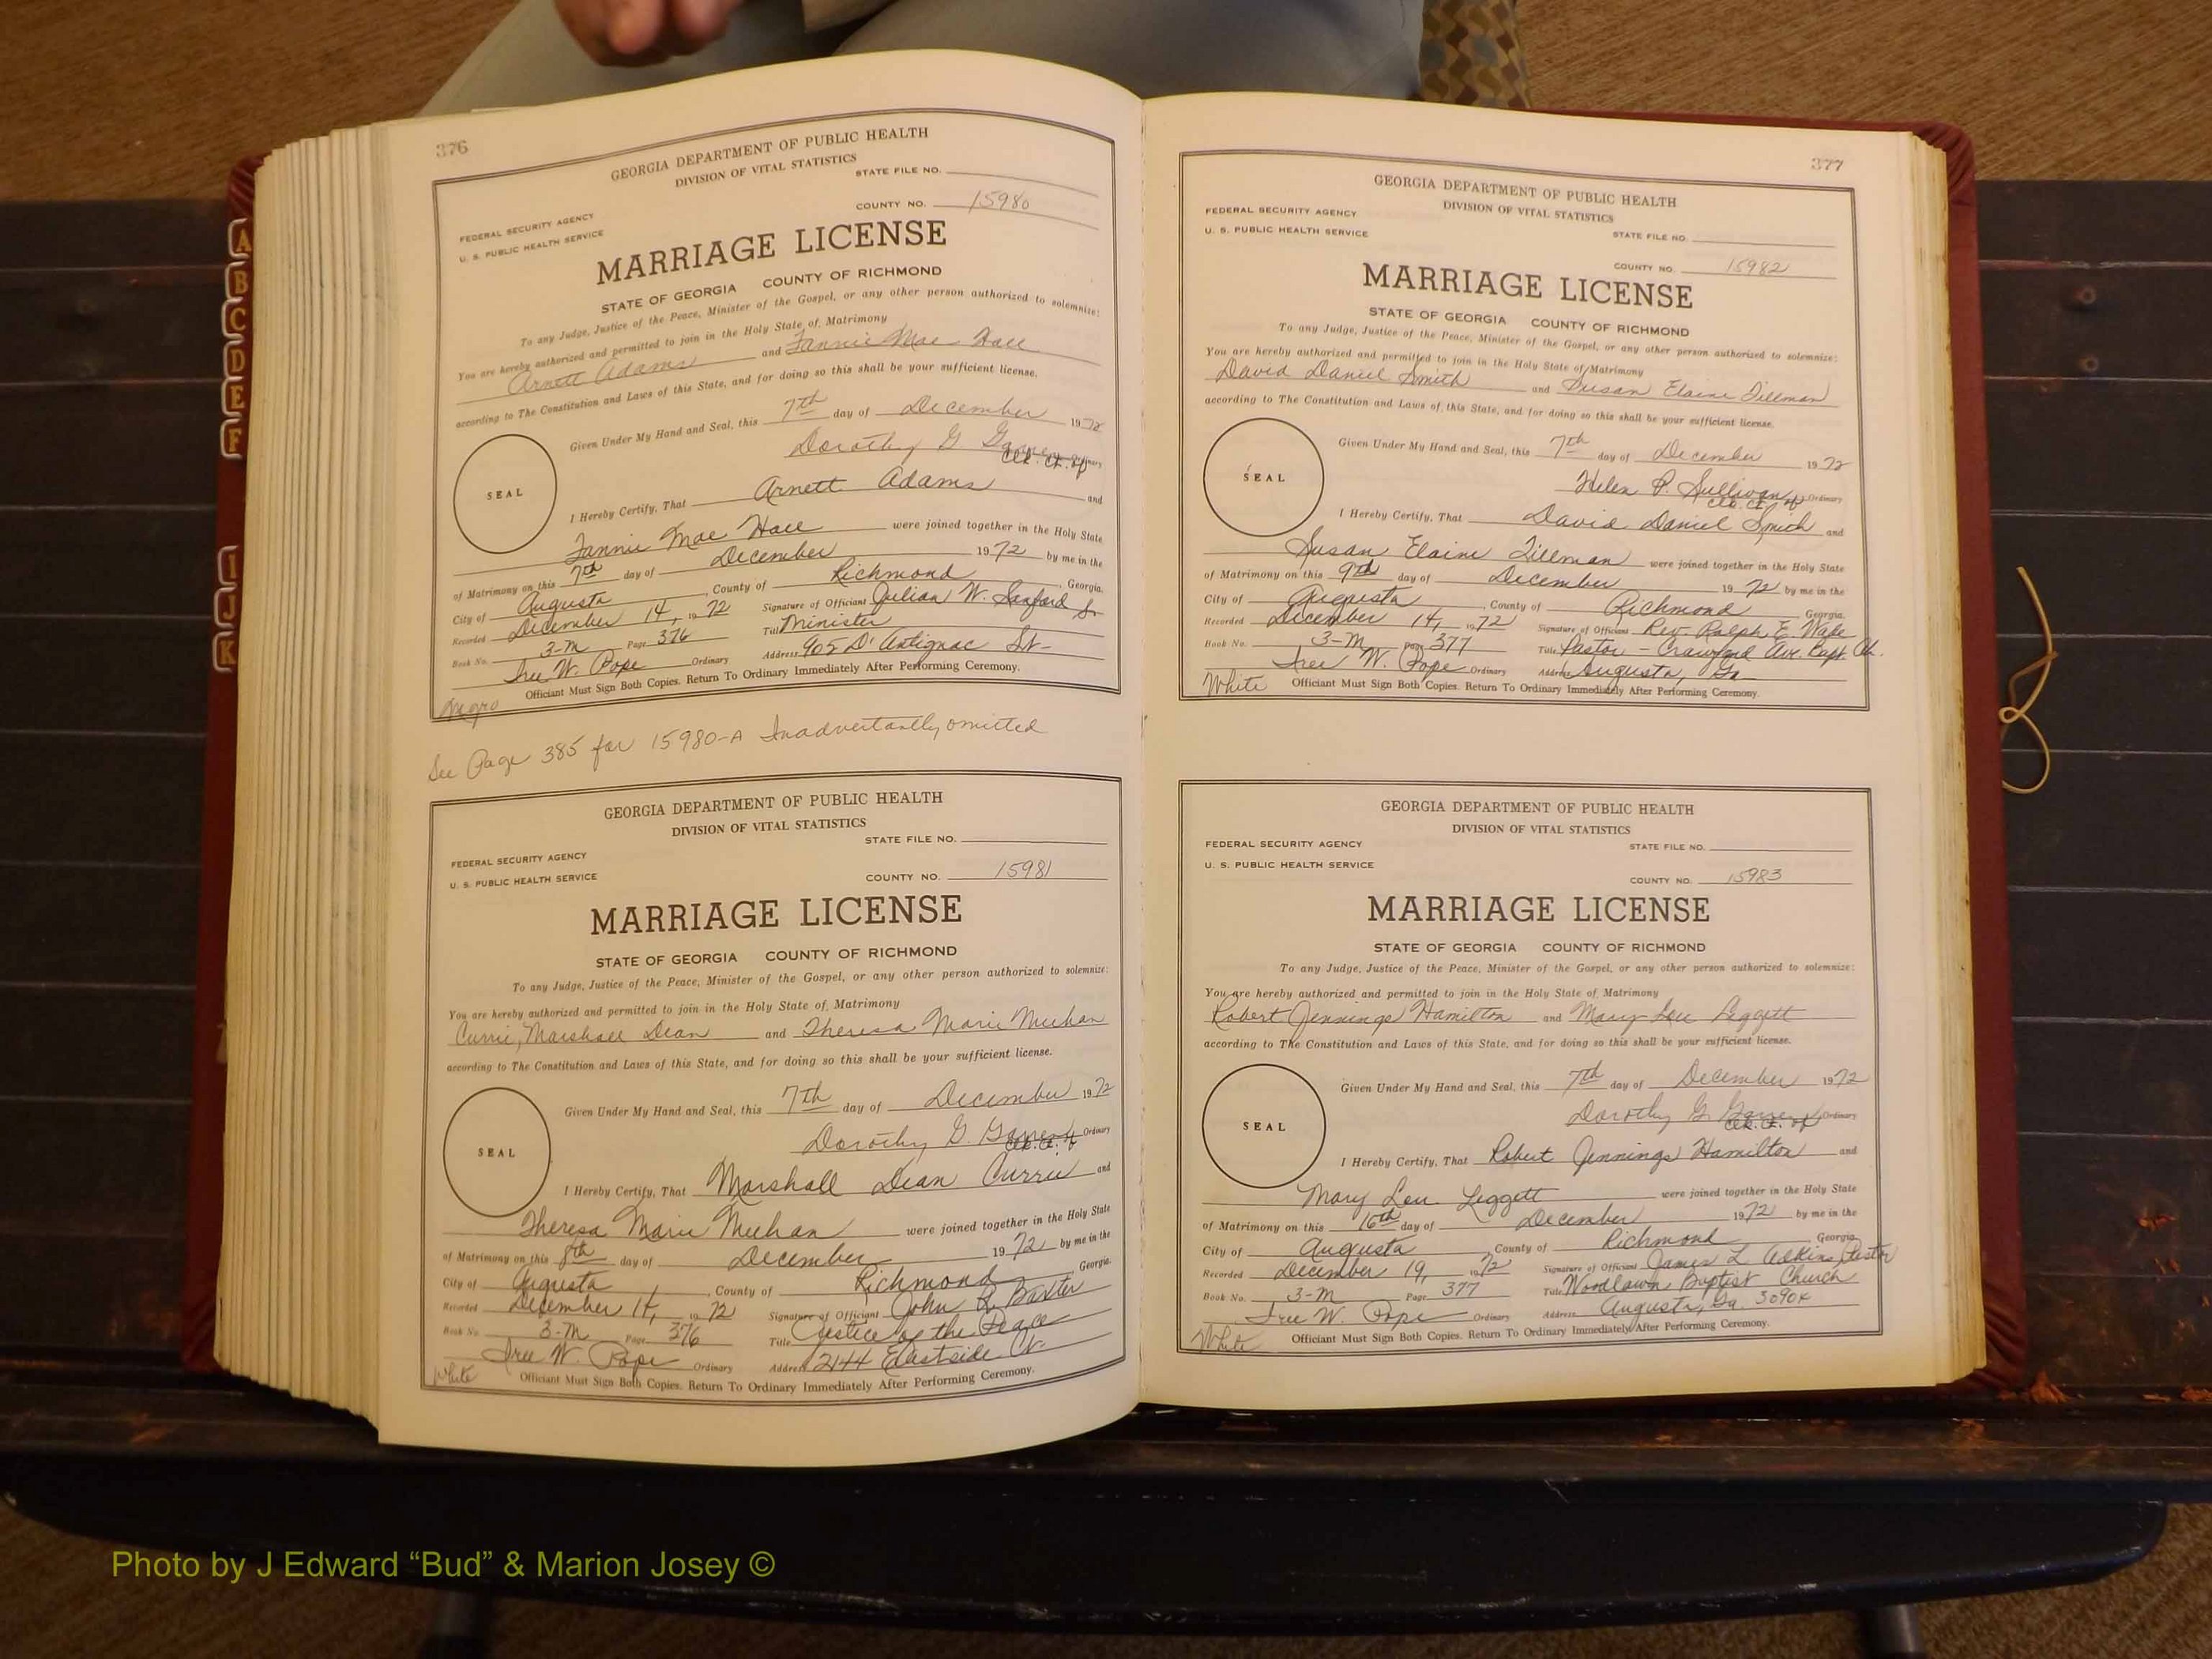 376
GEORGIA DEPARTMENT OF PUBLIC HEALTH
DIVISION OF VITAL STATISTICS
STATE FILE NO.
COUNTY NO. 15980
FEDERAL SECURITY AGENCY
U. S. PUBLIC HEALTH SERVICE
MARRIAGE LICENSE
STATE OF GEORGIA COUNTY OF RICHMOND
To any Judge, Justice of the Peace, Minister of the Gospel, or any other person authorized to solemnize:
You are hereby authorized and permitted to join in the Holy State of Matrimony
Arnett Adams and Fannie Mae Hall
according to The Constitution and Laws of this State, and for doing so this shall be your sufficient license.
Given Under My Hand and Seal, this 7th day of December 1972
Dorothy G. Ordinary
Clk. Ct. of
SEAL
I Hereby Certify, That Arnett Adams and
Fannie Mae Hall were joined together in the Holy State
of Matrimony on this 7th day of December 1972 by me in the
City of Augusta, County of Richmond, Georgia.
Recorded December 14, 1972 Signature of Officiant Julian W. Sanford Sr
Book No. 3-M Page 376 Title Minister
Iree W. Pope Ordinary Address 905 D'Antignac St-
Officiant Must Sign Both Copies. Return To Ordinary Immediately After Performing Ceremony.
Negro
See Page 385 for 15980-A Inadvertantly omitted
GEORGIA DEPARTMENT OF PUBLIC HEALTH
DIVISION OF VITAL STATISTICS
STATE FILE NO.
FEDERAL SECURITY AGENCY
U. S. PUBLIC HEALTH SERVICE
COUNTY NO. 15981
MARRIAGE LICENSE
STATE OF GEORGIA COUNTY OF RICHMOND
To any Judge, Justice of the Peace, Minister of the Gospel, or any other person authorized to solemnize:
You are hereby authorized and permitted to join in the Holy State of Matrimony
Currie, Marshall Dean and Theresa Marie Meehan
according to The Constitution and Laws of this State, and for doing so this shall be your sufficient license.
Given Under My Hand and Seal, this 7th day of December 1972
Dorothy G. Ordinary
Clk. Ct. of
SEAL
I Hereby Certify, That Marshall Dean Currie and
Theresa Marie Meehan were joined together in the Holy State
of Matrimony on this 8th day of December 1972 by me in the
City of Augusta, County of Richmond Georgia.
Recorded December 14, 1972 Signature of Officiant John R. Baxter
Book No. 3-M Page 376 Title Justice of the Peace
Iree W. Pope Ordinary Address 2144 Eastside Ct.
White
Officiant Must Sign Both Copies. Return To Ordinary Immediately After Performing Ceremony.
377
GEORGIA DEPARTMENT OF PUBLIC HEALTH
DIVISION OF VITAL STATISTICS
FEDERAL SECURITY AGENCY
U. S. PUBLIC HEALTH SERVICE
STATE FILE NO.
COUNTY NO. 15982
MARRIAGE LICENSE
STATE OF GEORGIA COUNTY OF RICHMOND
To any Judge, Justice of the Peace, Minister of the Gospel, or any other person authorized to solemnize:
You are hereby authorized and permitted to join in the Holy State of Matrimony
David Daniel Smith and Susan Elaine Tillman
according to The Constitution and Laws of this State, and for doing so this shall be your sufficient license.
Given Under My Hand and Seal, this 7th day of December 1972
Helen P. Sullivan Ordinary
Clk. Ct. of
SEAL
I Hereby Certify, That David Daniel Smith and
Susan Elaine Tillman were joined together in the Holy State
of Matrimony on this 9th day of December 1972 by me in the
City of Augusta, County of Richmond, Georgia.
Recorded December 14, 1972 Signature of Officiant Rev. Ralph E. Wade
Book No. 3-M Page 377 Title Pastor - Crawford Ave. Bapt. Ch.
Iree W. Pope Ordinary Address Augusta, Ga
White Officiant Must Sign Both Copies. Return To Ordinary Immediately After Performing Ceremony.
GEORGIA DEPARTMENT OF PUBLIC HEALTH
DIVISION OF VITAL STATISTICS
FEDERAL SECURITY AGENCY
U. S. PUBLIC HEALTH SERVICE
STATE FILE NO.
COUNTY NO. 15983
MARRIAGE LICENSE
STATE OF GEORGIA COUNTY OF RICHMOND
To any Judge, Justice of the Peace, Minister of the Gospel, or any other person authorized to solemnize:
You are hereby authorized and permitted to join in the Holy State of Matrimony
Robert Jennings Hamilton and Mary Lou Leggett
according to The Constitution and Laws of this State, and for doing so this shall be your sufficient license.
Given Under My Hand and Seal, this 7th day of December 1972
Dorothy G. Ordinary
Clk. Ct. of
SEAL
I Hereby Certify, That Robert Jennings Hamilton and
Mary Lou Leggett were joined together in the Holy State
of Matrimony on this 16th day of December 1972 by me in the
City of Augusta, County of Richmond, Georgia
Recorded December 19, 1972 Signature of Officiant James L. Adkins, Pastor
Book No. 3-M Page 377 Title Woodlawn Baptist Church
Iree W. Pope Ordinary Address Augusta, Ga. 30904
White Officiant Must Sign Both Copies. Return To Ordinary Immediately After Performing Ceremony.
A
B
C
D
E
F
I
J
K
Photo by J Edward “Bud” & Marion Josey ©